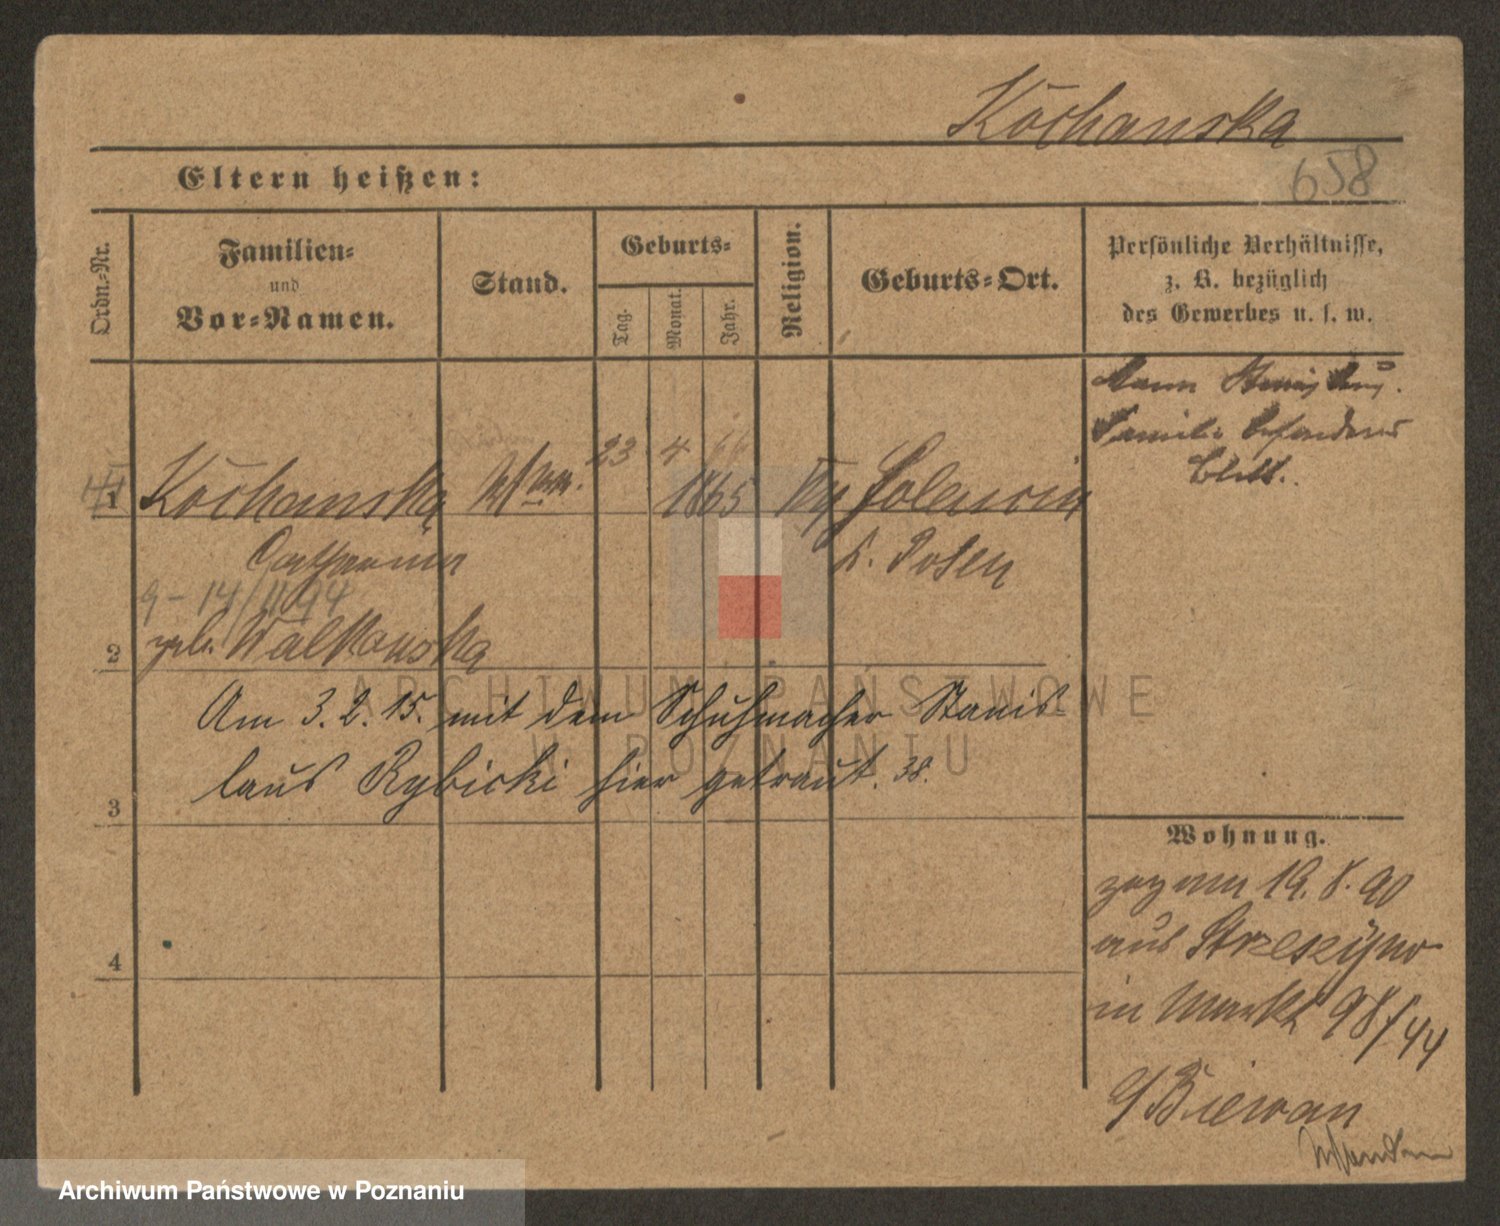 Kochanska
658
Eltern heißen:
Ordn.-Nr.
Familien-
und
Vor-Namen.
Stand.
Geburts-
Tag.
Monat.
Jahr.
Religion.
Geburts-Ort.
Persönliche Verhältnisse,
z. B. bezüglich
des Gewerbes u. s. w.
Mann
Familie besonderes
Blatt.
23 4 66
1 Kochanska 1865 Golencin
Catharina K. Posen
9-14/1194
2 geb. Walkowska
Am 3.2.15. mit dem Schuhmacher Stanis
laus Rybicki hier getraut. 38.
3
4
Wohnung.
zog am 19.8.90
aus Strzeszyno
in Markt 98/44
b/ Biewan
ARCHIWUM PAŃSTWOWE
W POZNANIU
Archiwum Państwowe w Poznaniu